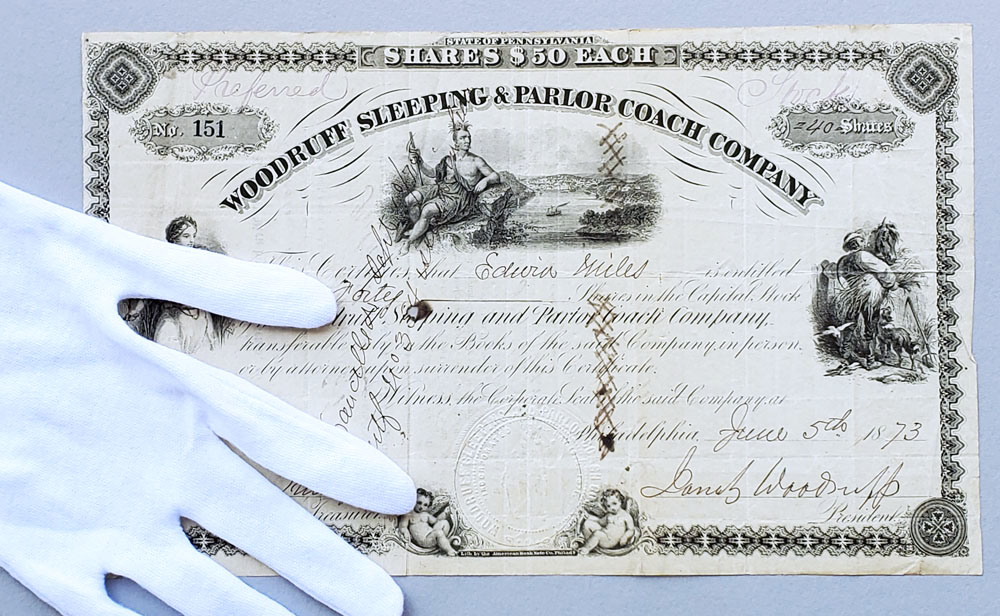 STATE OF PENNSYLVANIA
SHARES $50 EACH
Preferred Stock
No. 151
=40= Shares
WOODRUFF SLEEPING & PARLOR COACH COMPANY
This Certifies that Edwin Miles is entitled
Forty Shares in the Capital Stock
and Parlor Coach Company,
transferable only on the Books of the said Company in person
or by attorney upon surrender of this Certificate.
Witness, the Corporate Seal of the said Company at
Philadelphia, June 5th 1873
Woodruff
Treasurer.
President.
Lith by the American Bank Note Co. Philada